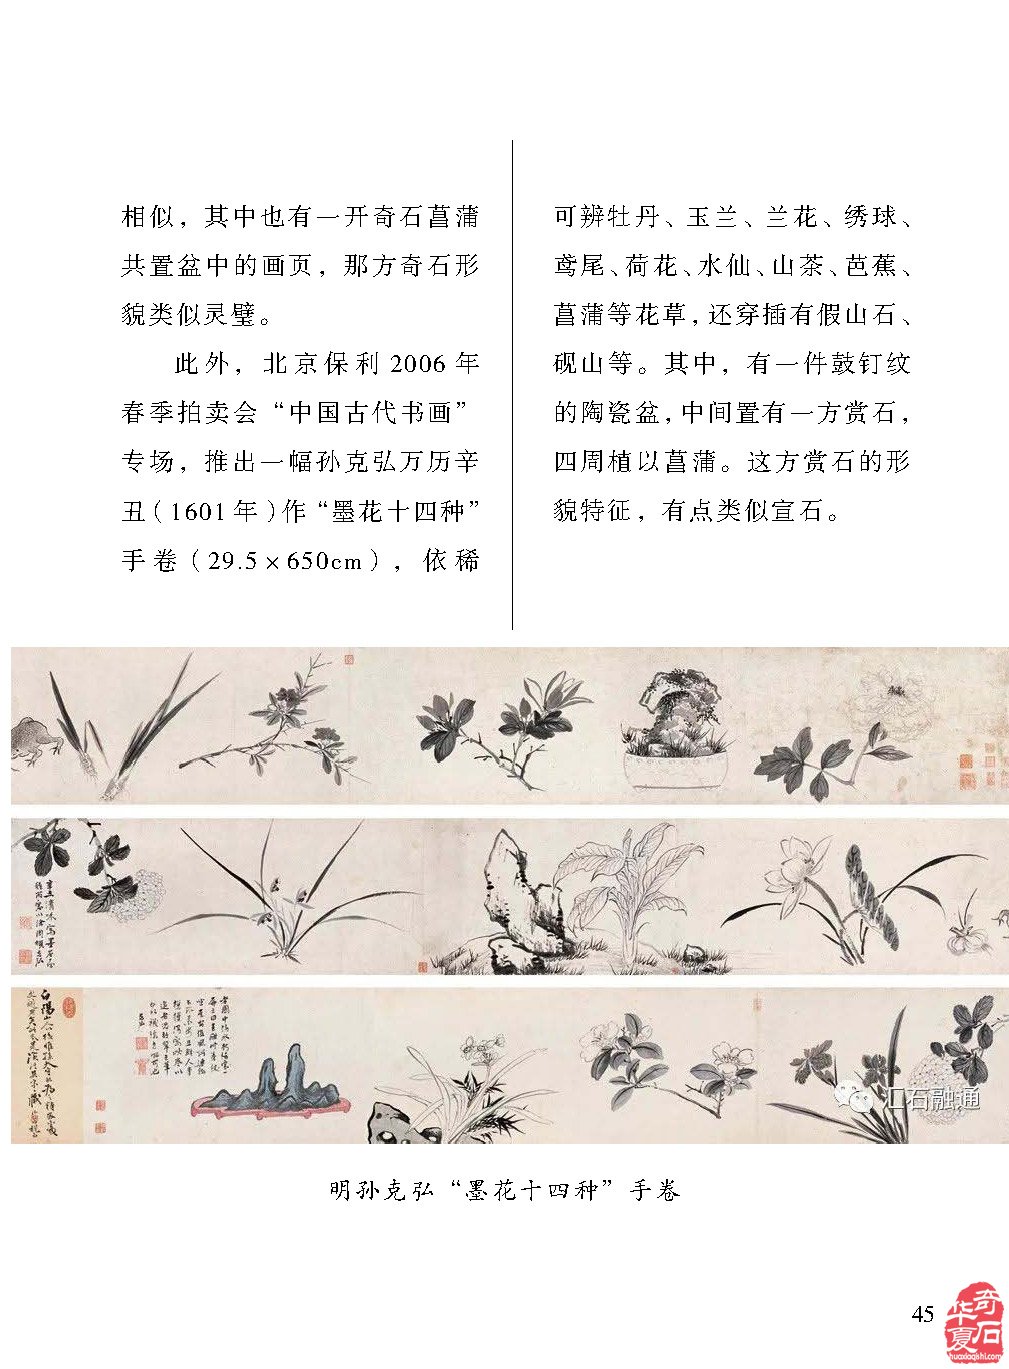 相似，其中也有一开奇石菖蒲
共置盆中的画页，那方奇石形
貌类似灵璧。
此外，北京保利2006年
春季拍卖会“中国古代书画”
专场，推出一幅孙克弘万历辛
丑（1601年）作“墨花十四种”
手卷（29.5×650cm），依稀
可辨牡丹、玉兰、兰花、绣球、
鸢尾、荷花、水仙、山茶、芭蕉、
菖蒲等花草，还穿插有假山石、
砚山等。其中，有一件鼓钉纹
的陶瓷盆，中间置有一方赏石，
四周植以菖蒲。这方赏石的形
貌特征，有点类似宣石。
汇石融通
明孙克弘“墨花十四种”手卷
45
华夏奇石
huaxiaqishi.com